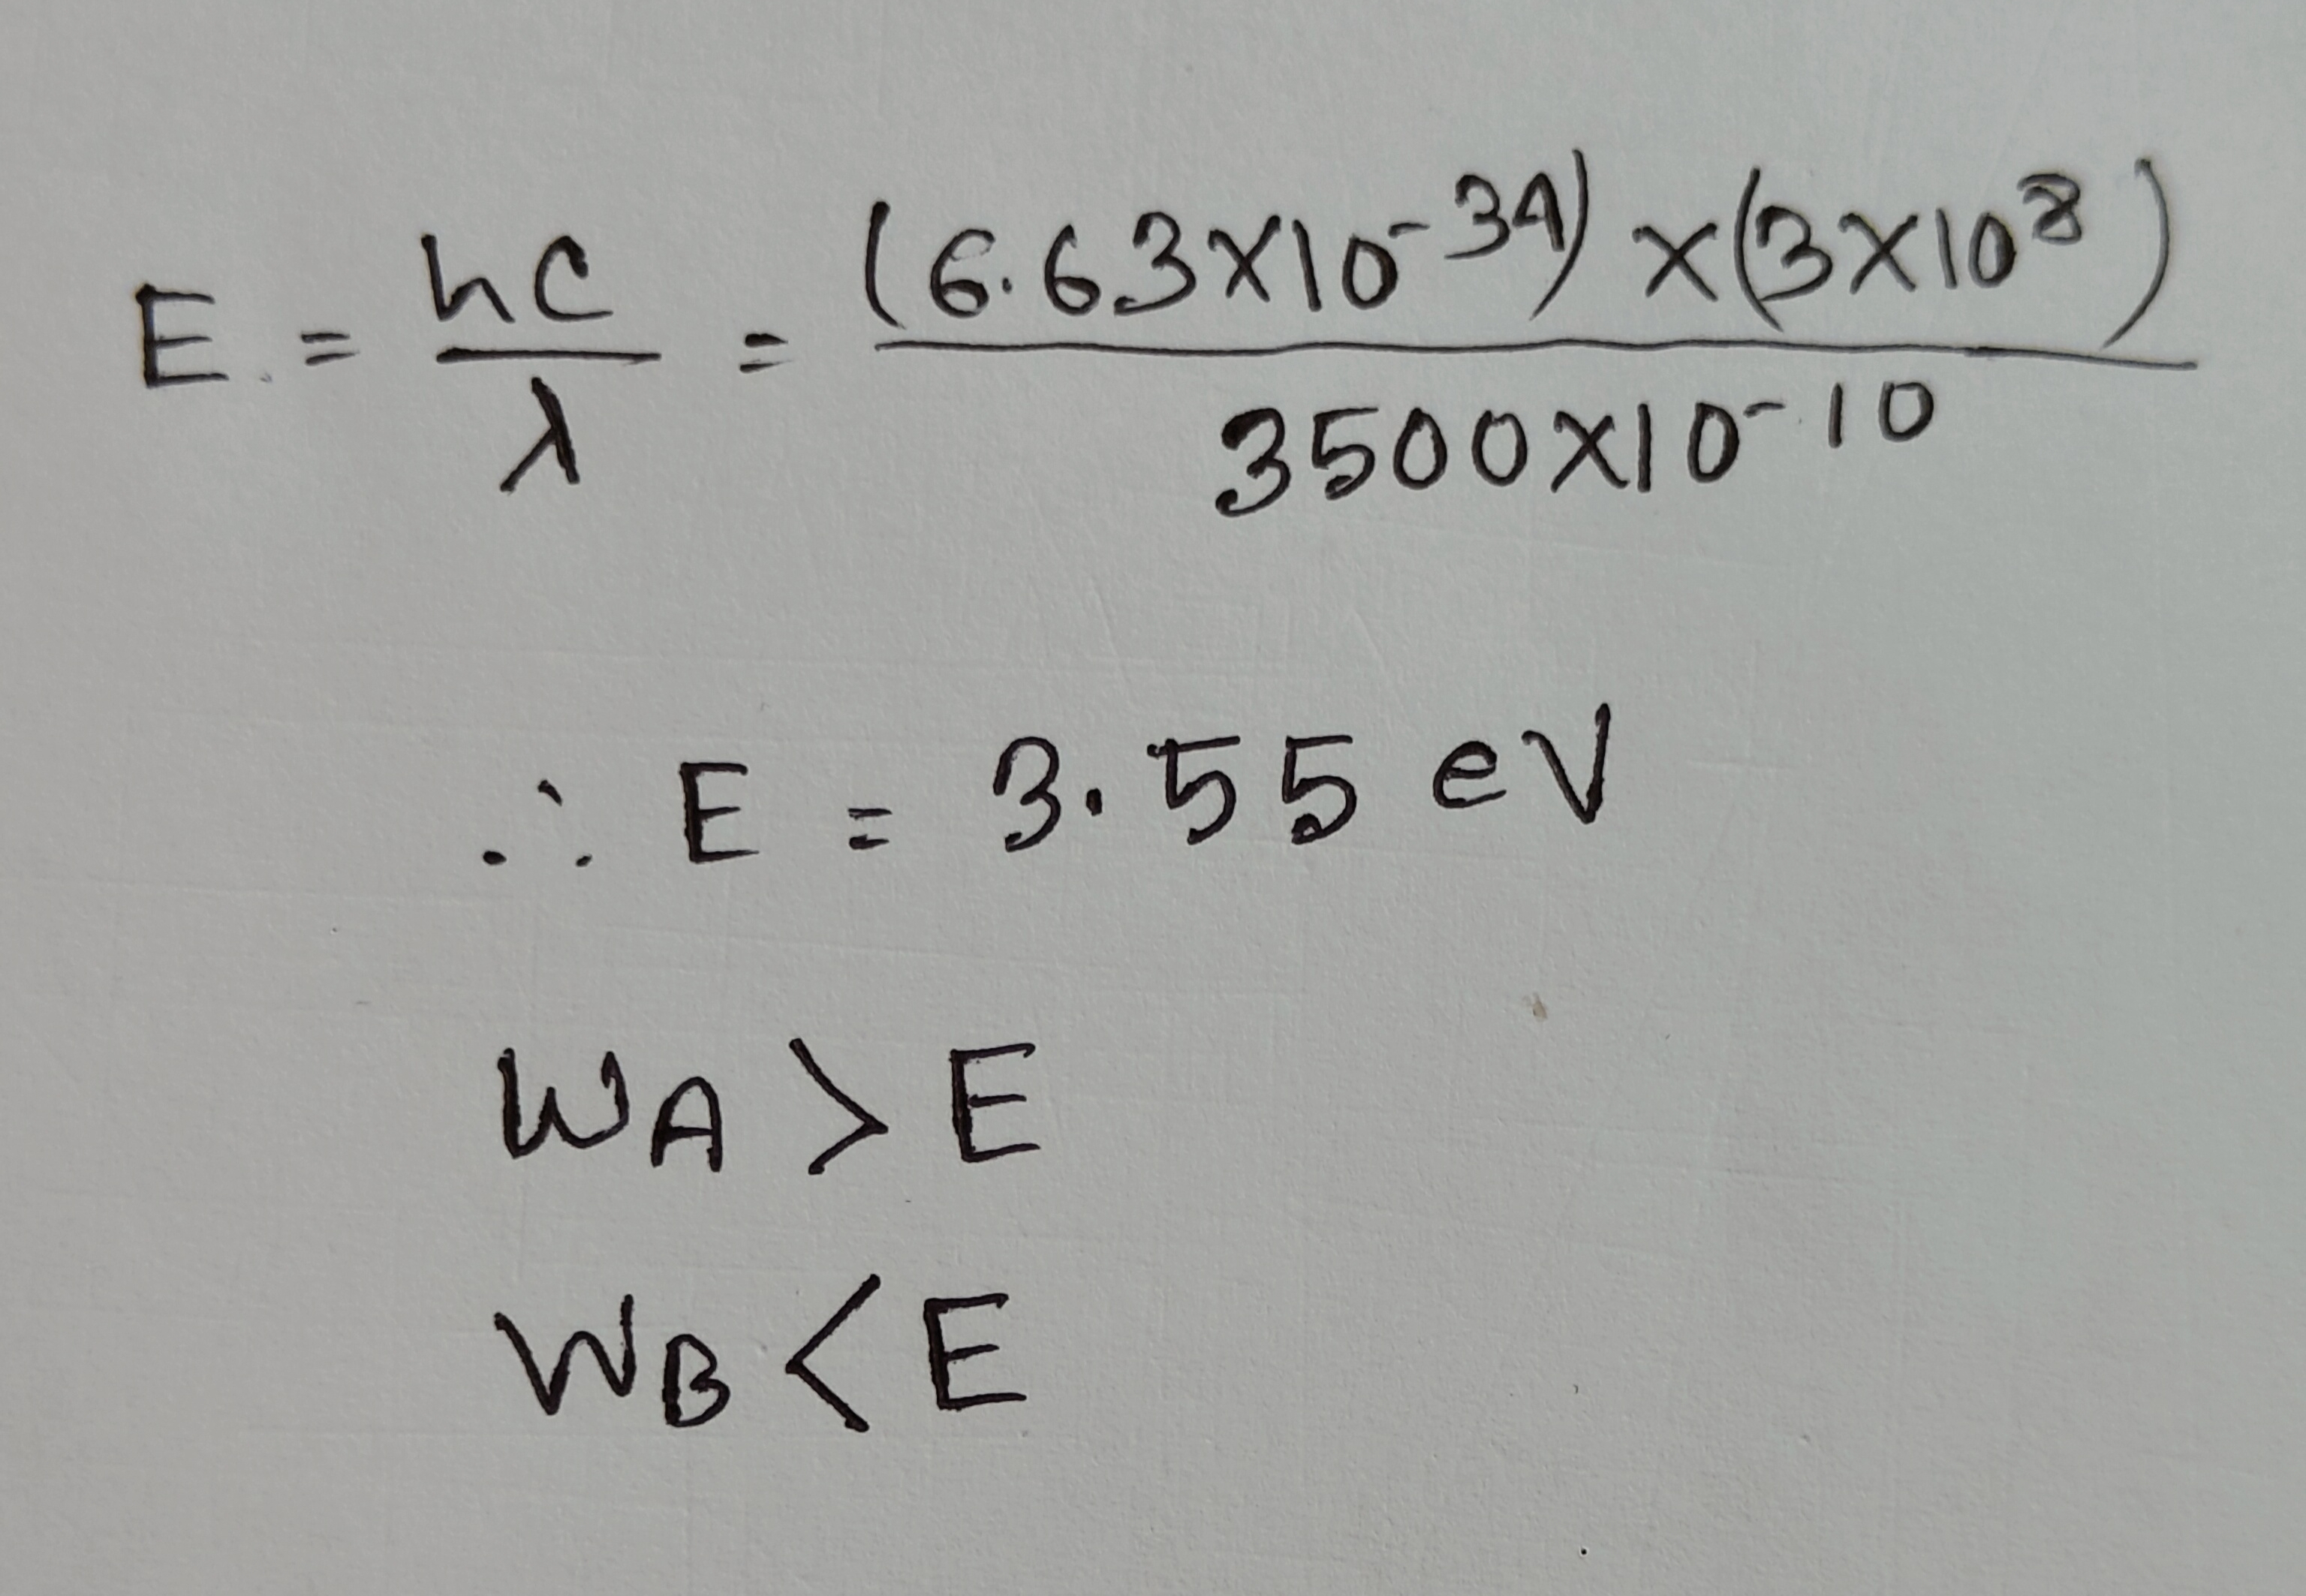 E = hc/λ = (6.63×10⁻³⁴)×(3×10⁸)/3500×10⁻¹⁰
∴ E = 3.55 eV
WA > E
WB < E